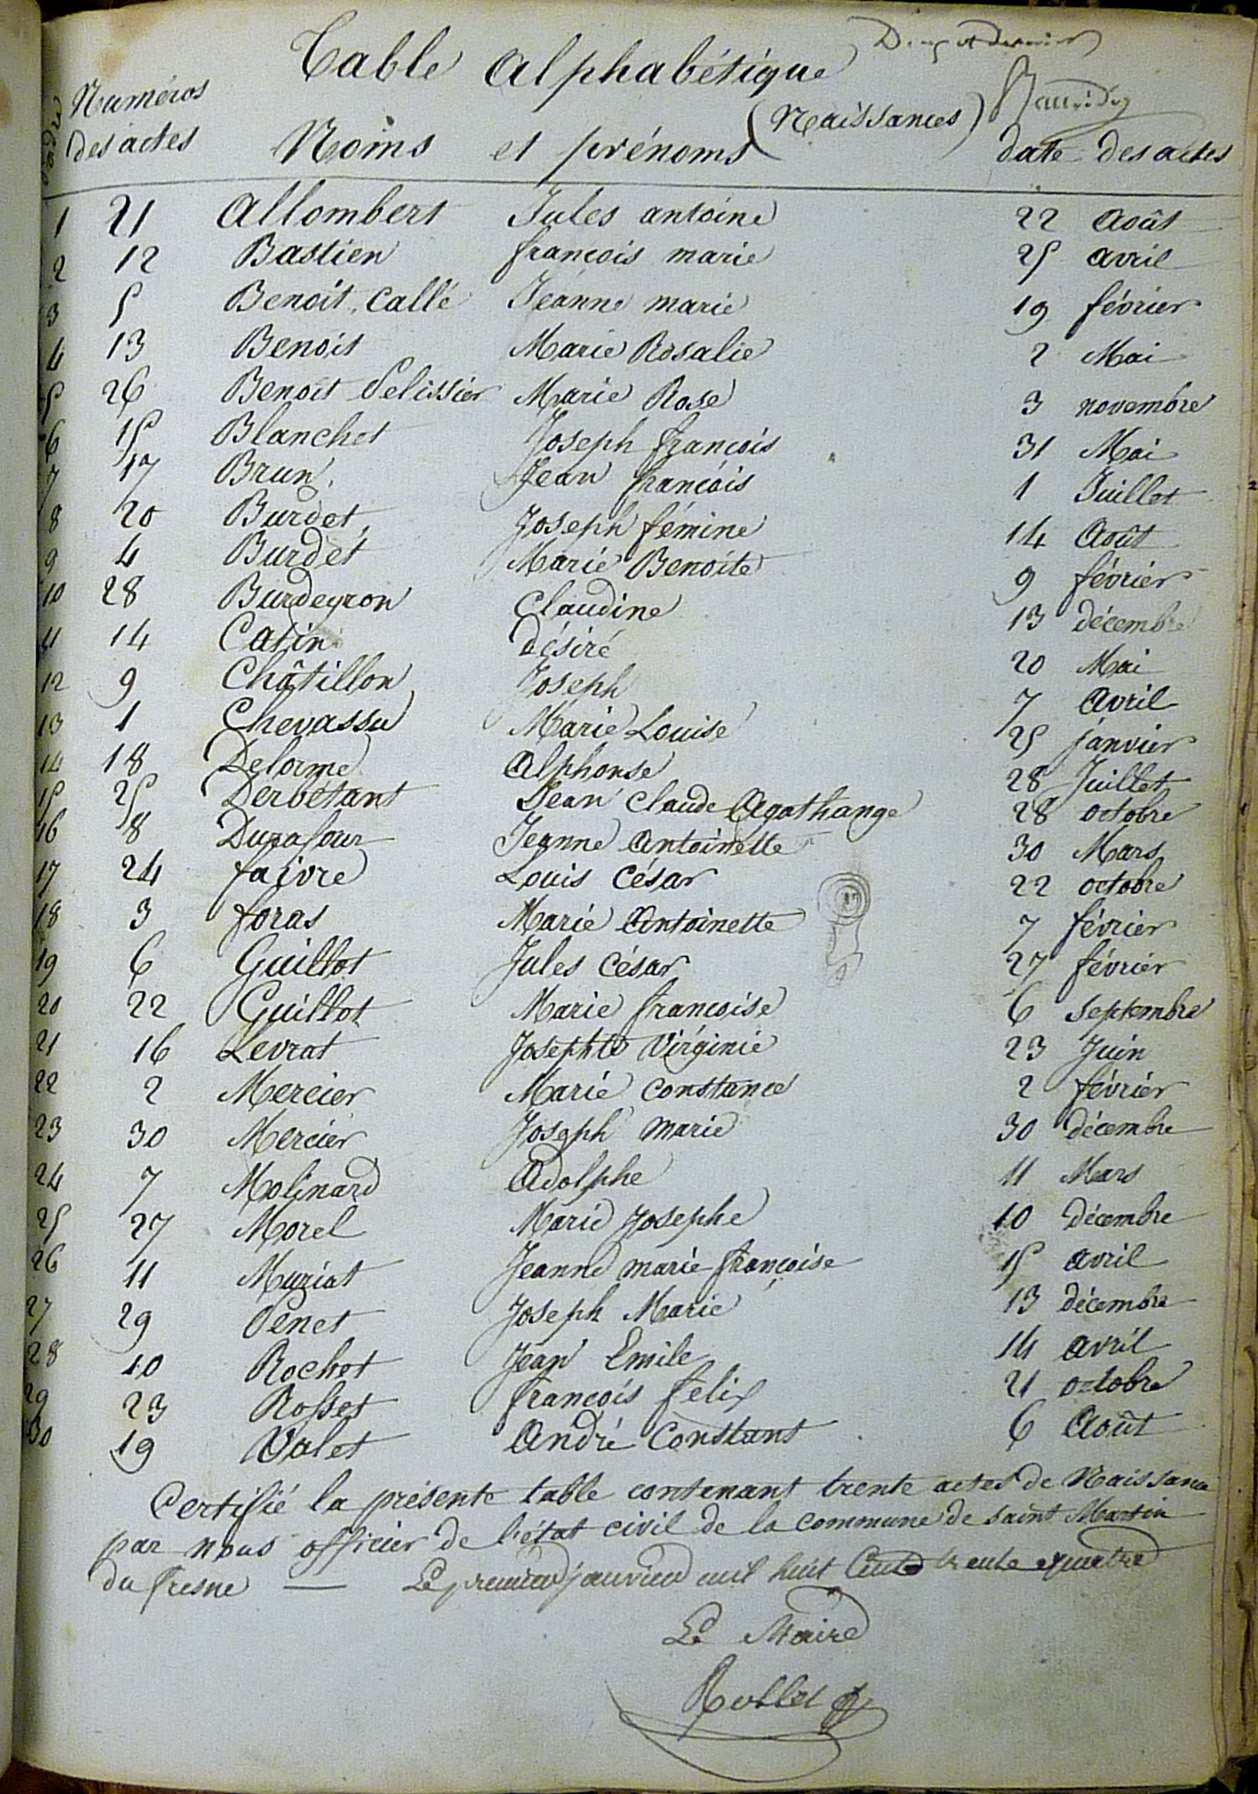 Table Alphabétique
(Naissances)
Numéros
des actes Noms et prénoms date des actes
1 21 Allombert Jules antoine 22 Août
2 12 Bastien françois marie 25 avril
3 5 Benoit, Callé Jeanne marie 19 février
4 13 Benoit Marie Rosalie 2 Mai
5 26 Benoit Pelissier Marie Rose 3 novembre
6 15 Blanchet Joseph françois 31 Mai
7 17 Brun, Jean françois 1 Juillet
8 20 Burdet, Joseph fémine 14 Août
9 4 Burdet Marie Benoite 9 février
10 28 Burdeyron Claudine 13 décembre
11 14 Catin désiré 20 Mai
12 9 Châtillon Joseph 7 avril
13 1 Chevassu Marie Louise 25 janvier
14 18 Delorme Alphonse 28 Juillet
15 25 Derbétant Jean Claude Agathange 28 octobre
16 8 Durafour Jeanne Antoinette 30 Mars
17 24 faivre Louis César 22 octobre
18 3 foras Marie Antoinette 7 février
19 6 Guillot Jules César 27 février
20 22 Guillot Marie françoise 6 septembre
21 16 Levrat Josephte Virginie 23 Juin
22 2 Mercier Marie constance 2 février
23 30 Mercier Joseph marie 30 décembre
24 7 Molinard Adolphe 11 Mars
25 27 Morel Marie Josephe 10 décembre
26 11 Muriat Jeanne marie françoise 15 avril
27 29 Penet Joseph Marie 13 décembre
28 10 Rochet Jean Emile 14 avril
29 23 Rosset françois felix 21 octobre
30 19 Valet André Constant 6 Août
Certifié la présente table contenant trente actes de Naissance
par nous officier de l'état civil de la commune de saint Martin
du fresne — Le premier janvier mil huit Cent trente quatre
Le Maire
Rollet